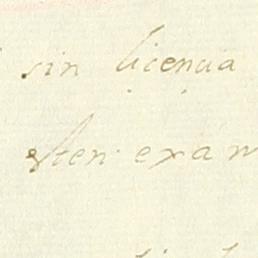 sin licencia
esten exam